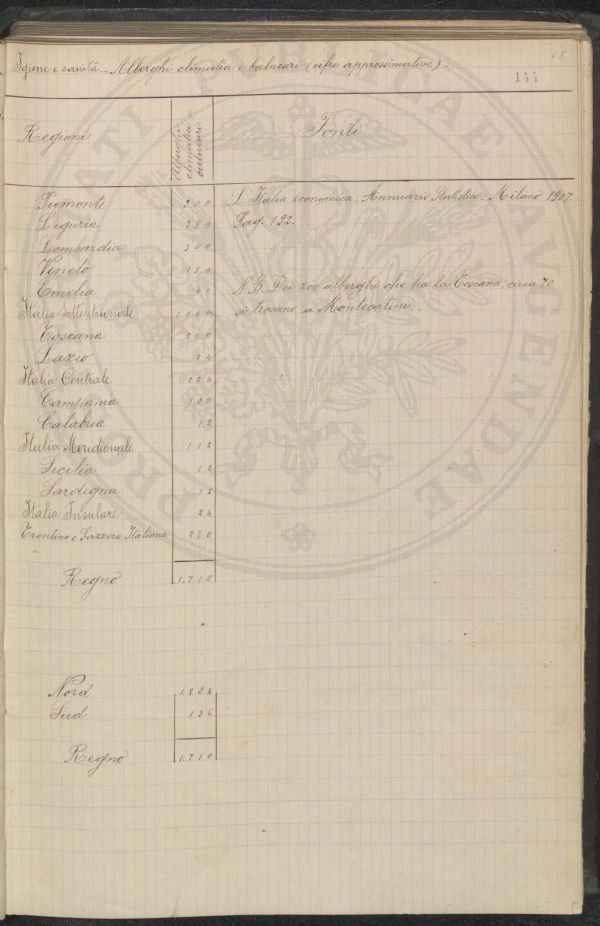 Igiene e sanità. - Alberghi climatici e balneari (cifre approssimative) -
144
Regioni
Alberghi climatici e balneari
Fonti
Piemonte 300 L'Italia economica. Annuario Statistico. Milano 1907.
Liguria 250 Pag. 192.
Lombardia 300
Veneto 150
Emilia 60 N.B. Dei 200 alberghi che ha la Toscana, circa 70
Italia Settentrionale 1.060 si trovano a Montecatini. -
Toscana 200
Lazio 24
Italia Centrale 224
Campania 100
Calabria 12
Italia Meridionale 112
Sicilia 12
Sardegna 12
Italia Insulare 24
Trentino e Svizzera Italiana 290
Regno 1.710
Nord 1.284
Sud 136
Regno 1.710